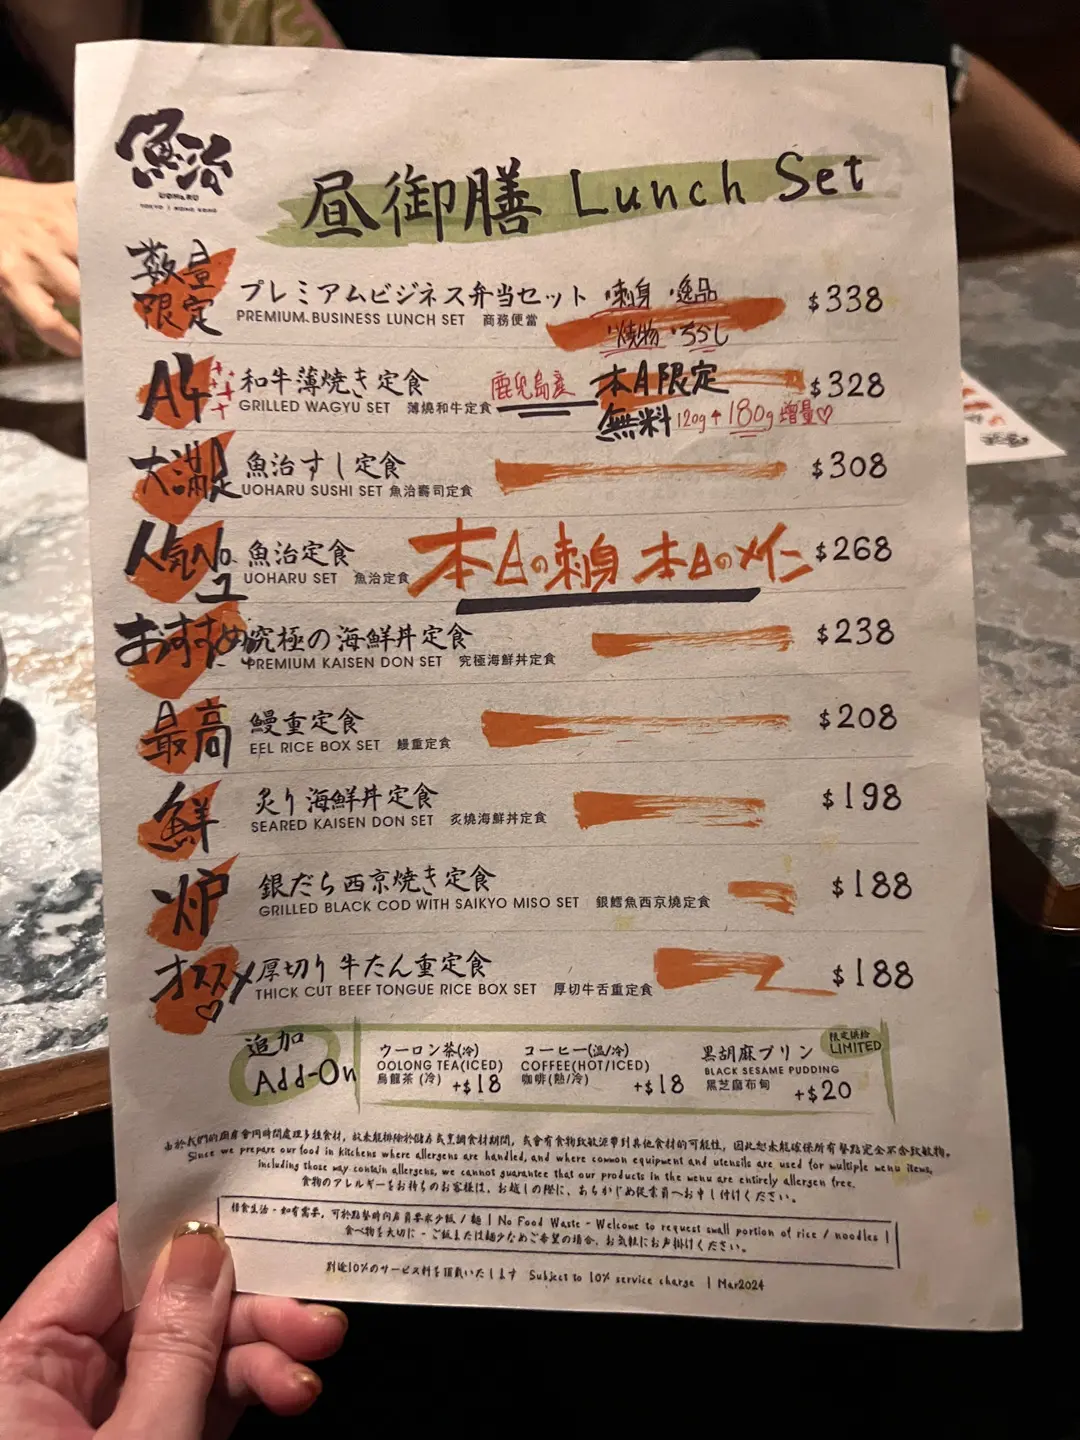 魚治
UOHARU
TOKYO | HONG KONG
昼御膳 Lunch Set
数量
限定
プレミアムビジネス弁当セット
・刺身 ・逸品
$338
PREMIUM BUSINESS LUNCH SET 商務便當
・焼物 ・ちらし
A4
和牛薄焼き定食
鹿児島産
本日限定
$328
GRILLED WAGYU SET 薄燒和牛定食
無料 120g→180g 増量♡
大満足
魚治すし定食
$308
UOHARU SUSHI SET 魚治壽司定食
人気No.1
魚治定食
本日の刺身 本日のメイン
$268
UOHARU SET 魚治定食
おすすめ
究極の海鮮丼定食
$238
PREMIUM KAISEN DON SET 究極海鮮丼定食
最高
鰻重定食
$208
EEL RICE BOX SET 鰻重定食
鮮
炙り海鮮丼定食
$198
SEARED KAISEN DON SET 炙燒海鮮丼定食
炉
銀だら西京焼き定食
$188
GRILLED BLACK COD WITH SAIKYO MISO SET 銀鱈魚西京燒定食
オススメ♡
厚切り牛たん重定食
$188
THICK CUT BEEF TONGUE RICE BOX SET 厚切牛舌重定食
追加
Add-On
ウーロン茶(冷)
OOLONG TEA(ICED)
烏龍茶 (冷) +$18
コーヒー(温/冷)
COFFEE(HOT/ICED)
咖啡(熱/冷) +$18
黒胡麻プリン
LIMITED
BLACK SESAME PUDDING
黑芝麻布甸 +$20
由於我們的廚房會同時間處理多種食材，故未能排除於儲存或烹調食材期間，或會有食物致敏源帶到其他食材的可能性，因此恕未能確保所有餐點完全不含致敏物。
Since we prepare our food in kitchens where allergens are handled, and where common equipment and utensils are used for multiple menu items,
including those may contain allergens, we cannot guarantee that our products in the menu are entirely allergen free.
食物のアレルギーをお持ちのお客様は、お越しの際に、あらかじめ従業員へお申し付けください。
惜食生活 - 如有需要，可於點餐時向店員要求少飯 / 麵 | No Food Waste - Welcome to request small portion of rice / noodles |
食べ物を大切に - ご飯または麺少なめご希望の場合、お気軽にお声掛けください。
別途10%のサービス料を頂戴いたします Subject to 10% service charge | Mar2024